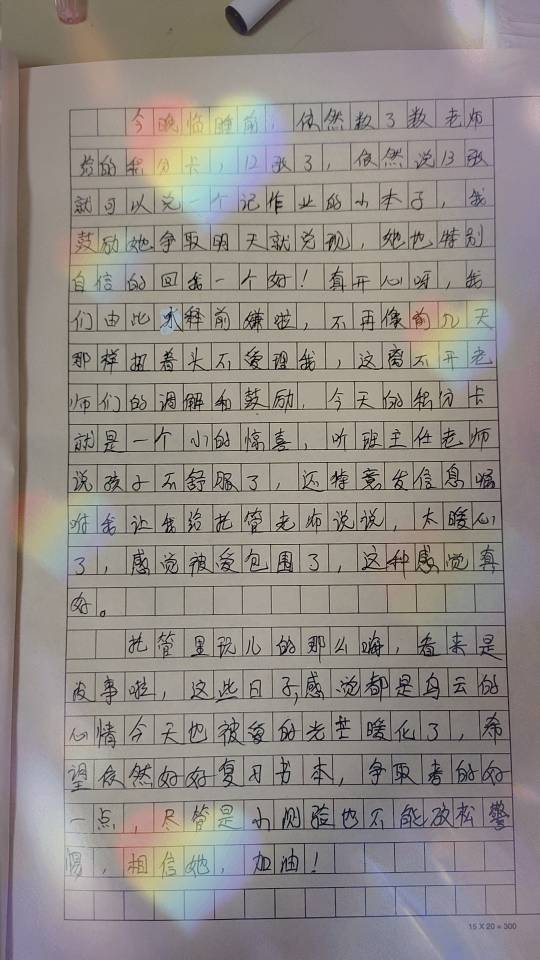 今晚临睡前，依然数了数老师
给的积分卡，12张了，依然说13张
就可以兑一个记作业的小本子，我
鼓励她争取明天就兑现，她也特别
自信的回我一个好！真开心呀，我
们由此冰释前嫌啦，不再像前几天
那样扭着头不爱理我，这离不开老
师们的调解和鼓励，今天的积分卡
就是一个小的惊喜，听班主任老师
说孩子不舒服了，还特意发信息嘱
咐我让我给托管老师说说，太暖心
了，感觉被爱包围了，这种感觉真
好。
托管里玩儿的那么嗨，看来是
没事啦，这些日子，感觉都是乌云的
心情今天也被爱的光芒暖化了，希
望依然好好复习书本，争取考的好
一点，尽管是小测验也不能放松警
惕，相信她，加油！
15 X 20 = 300